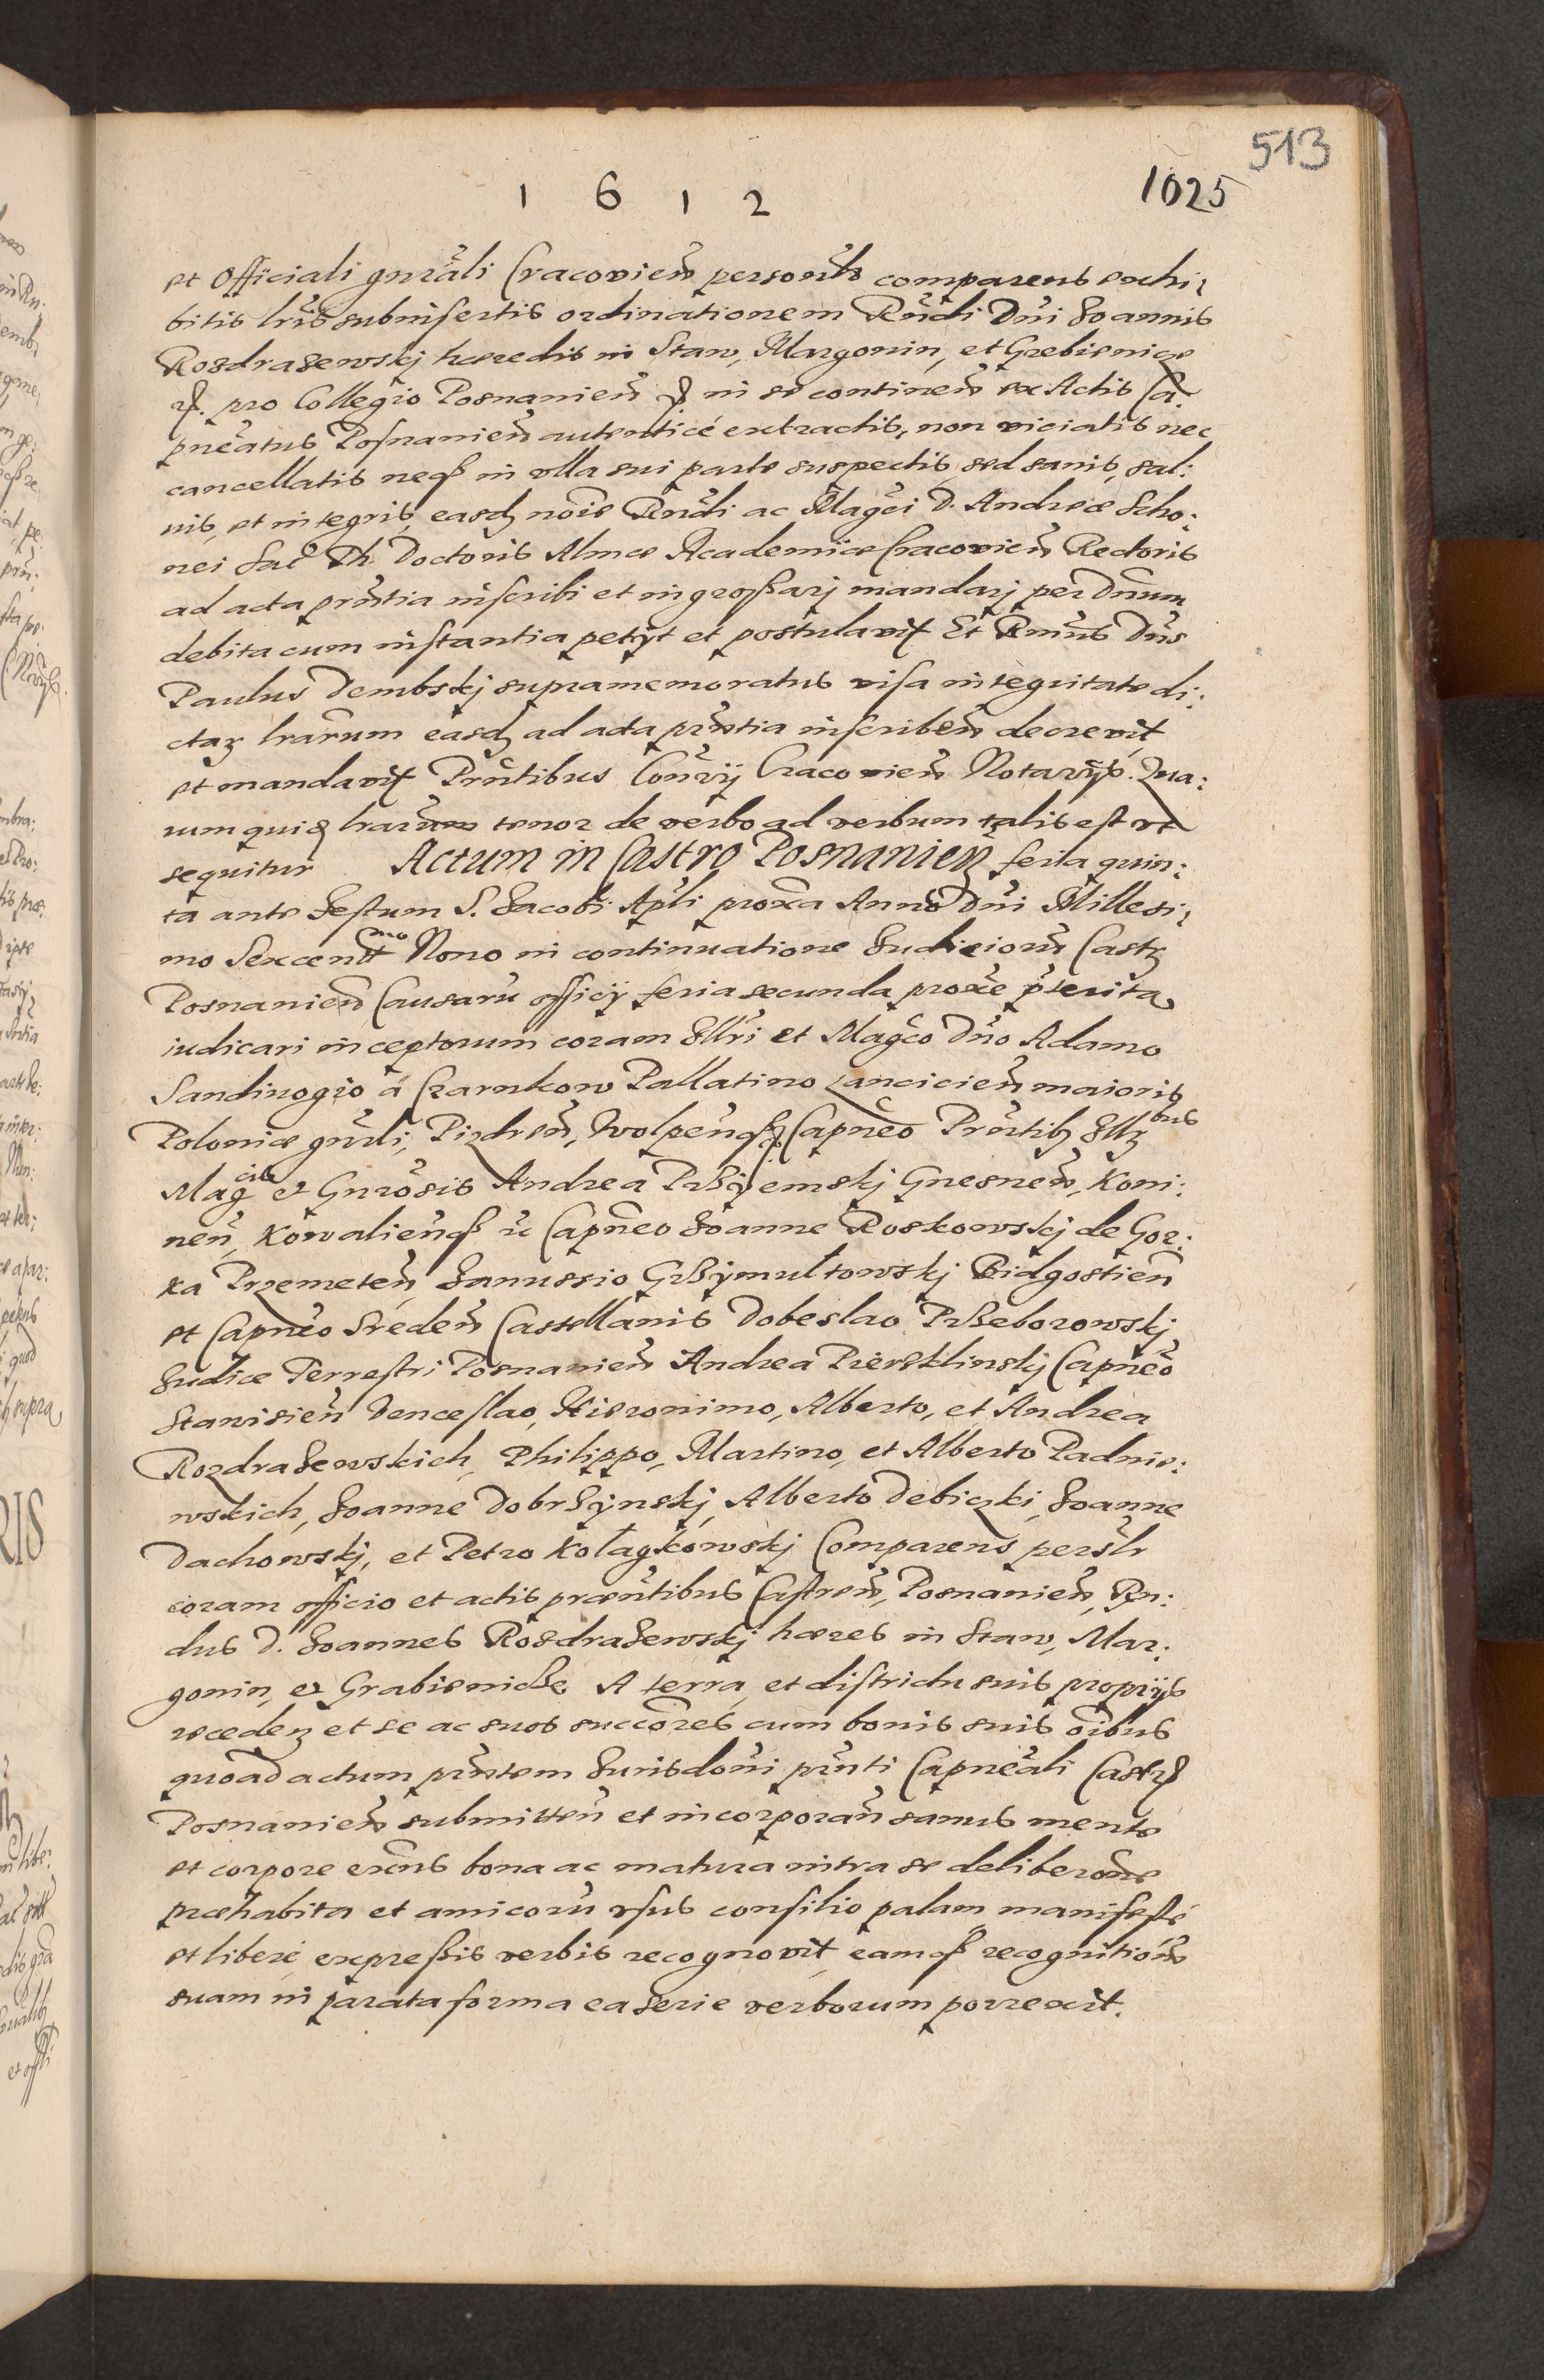 513
1 6 1 2
1025
et Officiali gnrali Cracovien personlr comparens exhi:
bitis lris subinsertis ordinationem Rndi Dni Joannis
Rozdrazewskj hæredis in Staw, Margonin, et Grebienice
pro Collegio Posnanien in se continen ex Actis Ca:
pneatus Posnanien autenticé extractis, non viciatis nec
cancellatis neq in vlla sui parte suspectis, sed sanis, sal:
uis, et integris, easdq noie Rndi ac Magci D. Andreæ Scho:
nei Sac Th. Doctoris Almæ Academiæ Cracovien Rectoris
ad acta prntia inscribi et ingrossarj mandarj per Dnum
debita cum instantia petijt et postulavit Et Rmus Dns
Paulus Dembskj supramemoratus visa integritate di:
ctaz lrarum easdq ad acta prntia inscriben decrevit
et mandavit PrntibusConrij Cracovien Notarijs. Qua:
rum quidq lrarum tenor de verbo ad verbum talis est vt
sequitur Actum in Castro Posnanien feria quin:
ta ante Festum S. Jacobi Apli proxa Anno Dni Millesi:
mo Sexcentmo Nono in continuatione Judiciorum Castr
Posnanien Causaru officij feria secunda proxe pterita
iudicari inceptorum coram Illri et Magco Dno Adamo
Sandivogio á Czarnkow Pallatino Lancicien maioris
Poloniæ gnrli, Pizdren, Wolpenq Capneo Prntib Illbus
Magcis et Gnrosis Andrea Przyjemskj Gnesnen, Koni:
nen, Kowalienq Capneo Joanne Roskowskj de Gor:
ka Przemeten, Janussio Grzymułtowskj Bidgostien
et Capneo Sreden Castellanis Dobeslao Przeborowskj
Judice Terrestri Posnanien Andrea Piersklinskj Capneo
Stawisien Venceslao, Hieronimo, Alberto, et Andrea
Rozdrazewskich, Philippo, Martino, et Alberto Padnie:
wskich, Joanne Dobrzynskj, Alberto Debiczki, Joanne
Dachowskj, et Petro Comparens perslr
coram officio et actis præntibus Castren, Posnanien, Rn:
dus D. Joannes Rozdrazewskj hæres in Staw, Mar:
gonin, et Grabienicze A terra, et districtu suis proprijs
receden et se ac suos succores cum bonis suis oibus
quoad actum prntem Jurisdoni prnti Capneali Castr
Posnanien submitten et incorporan sanus mente
et corpore exns bona ac matura intra se deliberone
præhabita et amicoru vsus consilio palam manifesté
et liberé, expressis verbis recognovit, eamq recognitione
suam in parata forma ea serie verborum porrexit.